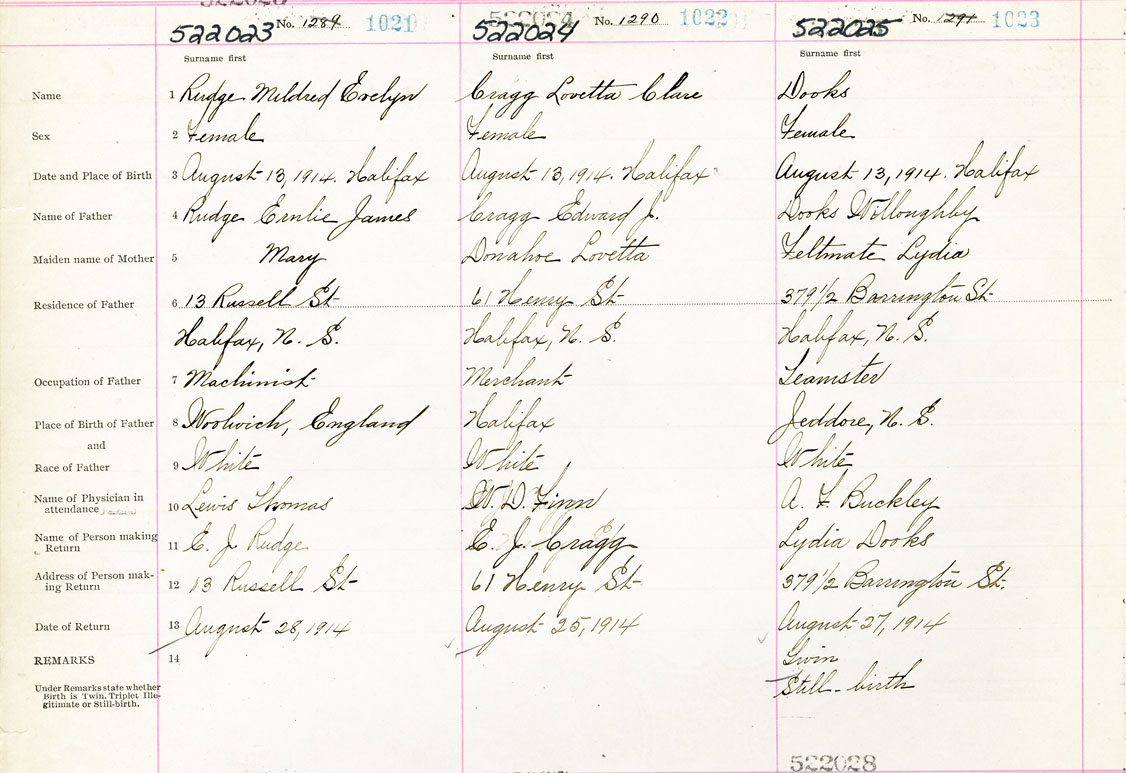 522023 No. 1289 1021 522024 522024 No. 1290 1022 522025 No. 1291 1023
Surname first Surname first Surname first
Name 1 Rudge Mildred Evelyn Cragg Lovetta Clare Dooks
Sex 2 Female Female Female
Date and Place of Birth 3 August 13, 1914. Halifax August 13, 1914. Halifax August 13, 1914. Halifax
Name of Father 4 Rudge Ernlie James Cragg Edward J. Dooks Willoughby
Maiden name of Mother 5 Mary Donahoe Lovetta Feltmate Lydia
Residence of Father 6 13 Russell St 61 Henry St 379 1/2 Barrington St
Halifax, N. S. Halifax, N. S. Halifax, N. S.
Occupation of Father 7 Machinist Merchant Teamster
Place of Birth of Father 8 Woolwich, England Halifax Jeddore, N. S.
and
Race of Father 9 White White White
Name of Physician in
attendance 10 Lewis Thomas W. D. Finn A. F. Buckley
Name of Person making
Return 11 E. J. Rudge E. J. Cragg Lydia Dooks
Address of Person mak-
ing Return 12 13 Russell St 61 Henry St 379 1/2 Barrington St.
Date of Return 13 August 28, 1914 August 25, 1914 August 27, 1914
REMARKS 14 Twin
Under Remarks state whether
Birth is Twin, Triplet Ille-
gitimate or Still-birth.
Still-birth
522028